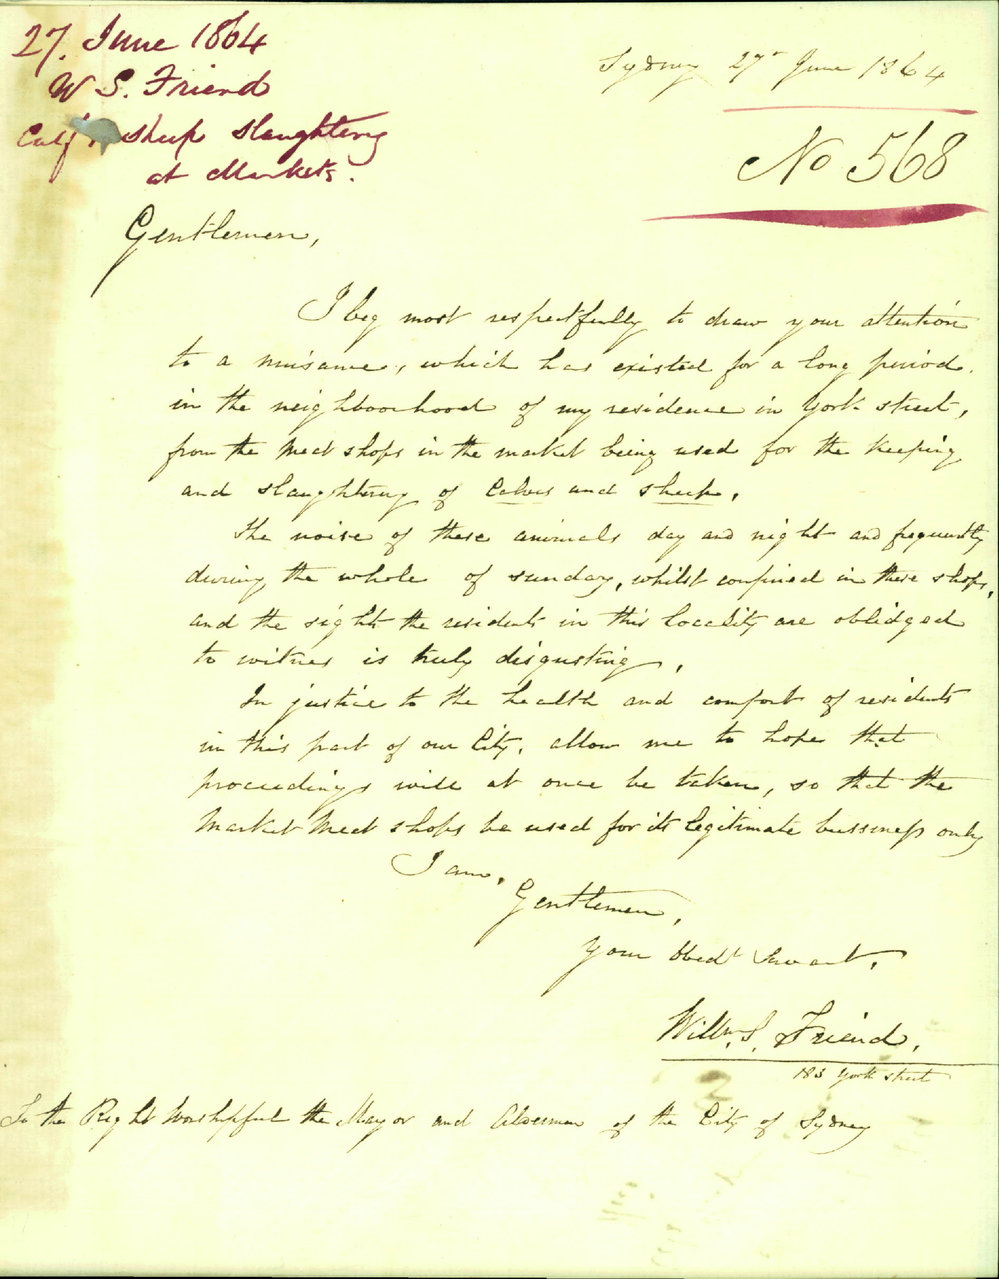 27. June 1864
W S. Friend
Calf & sheep slaughtering
at Markets.
Sydney 27th June 1864
No 568
Gentlemen,
I beg most respectfully to draw your attention
to a nuisance, which has existed for a long period.
in the neighbourhood of my residence in York street,
from the Meat shops in the market being used for the keeping
and slaughtering of Calves and sheep.
The noise of these animals day and night and frequently
during the whole of sunday, whilst confined in these shops,
and the sights the residents in this locality are oblidged
to witness is truly disgusting.
In justice to the health and comfort of residents
in this part of our City, allow me to hope that
proceedings will at once be taken, so that the
Market Meat shops be used for its legitimate bussiness only
I am,
Gentlemen,
Your Obedt Servant,
Willm. S. Friend.
183 York street
To the Right Worshipful the Mayor and Aldermen of the City of Sydney